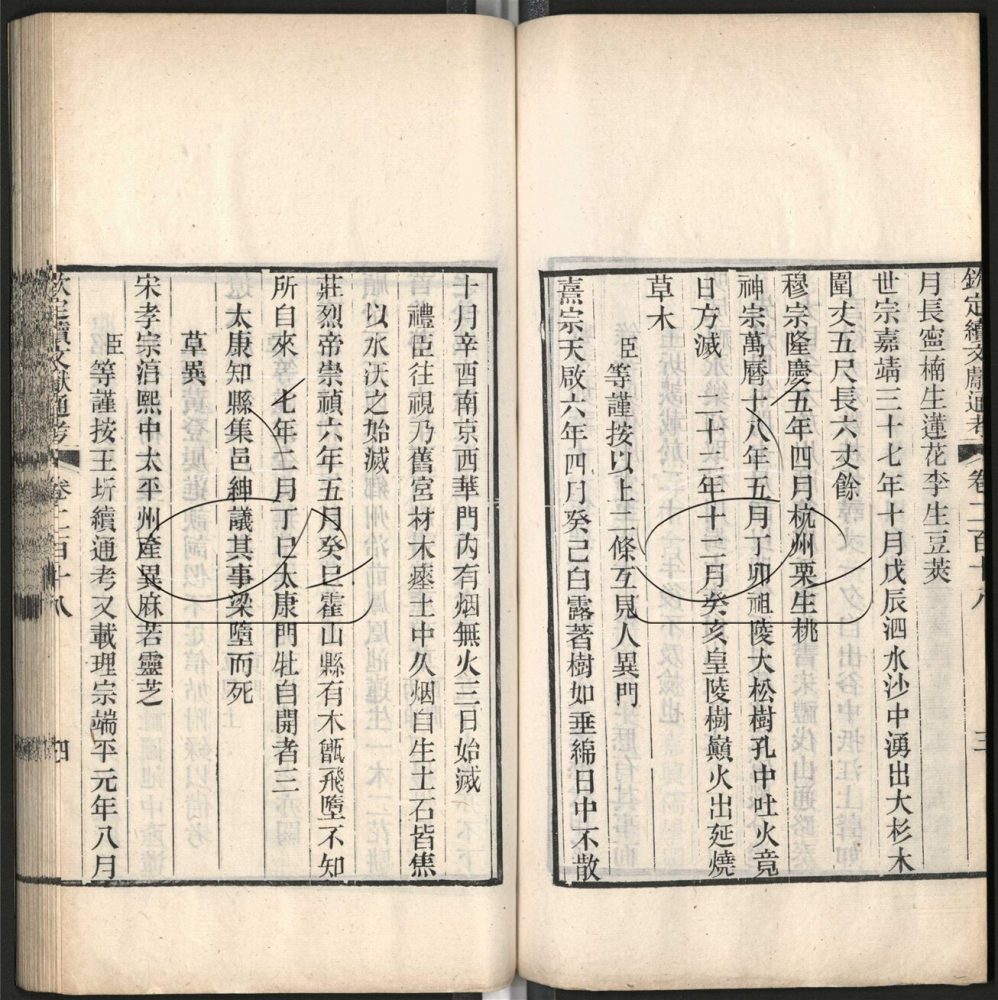 欽定續文獻通考 卷二百十八 三
月長寧楠生蓮花李生豆莢
世宗嘉靖三十七年十月戊辰泗水沙中湧出大杉木
圍丈五尺長六丈餘
穆宗隆慶五年四月杭州栗生桃
神宗萬曆十八年五月丁卯祖陵大松樹孔中吐火竟
日方滅 二十二年十二月癸亥皇陵樹巔火出延燒
草木
臣等謹按以上二條互見人異門
熹宗天啟六年四月癸己白露著樹如垂綿日中不散
十月辛酉南京西華門內有烟無火三日始滅
禮臣往視乃舊宮材木瘞土中久烟自生土石皆焦
以水沃之始滅
莊烈帝崇禎六年五月癸巳霍山縣有木甑飛墮不知
所自來 七年二月丁巳太康門牡自開者三
太康知縣集邑紳議其事梁墮而死
草異
宋孝宗淳熙中太平州產異麻若靈芝
臣等謹按王圻續通考又載理宗端平元年八月
欽定續文獻通考 卷二百十八 四